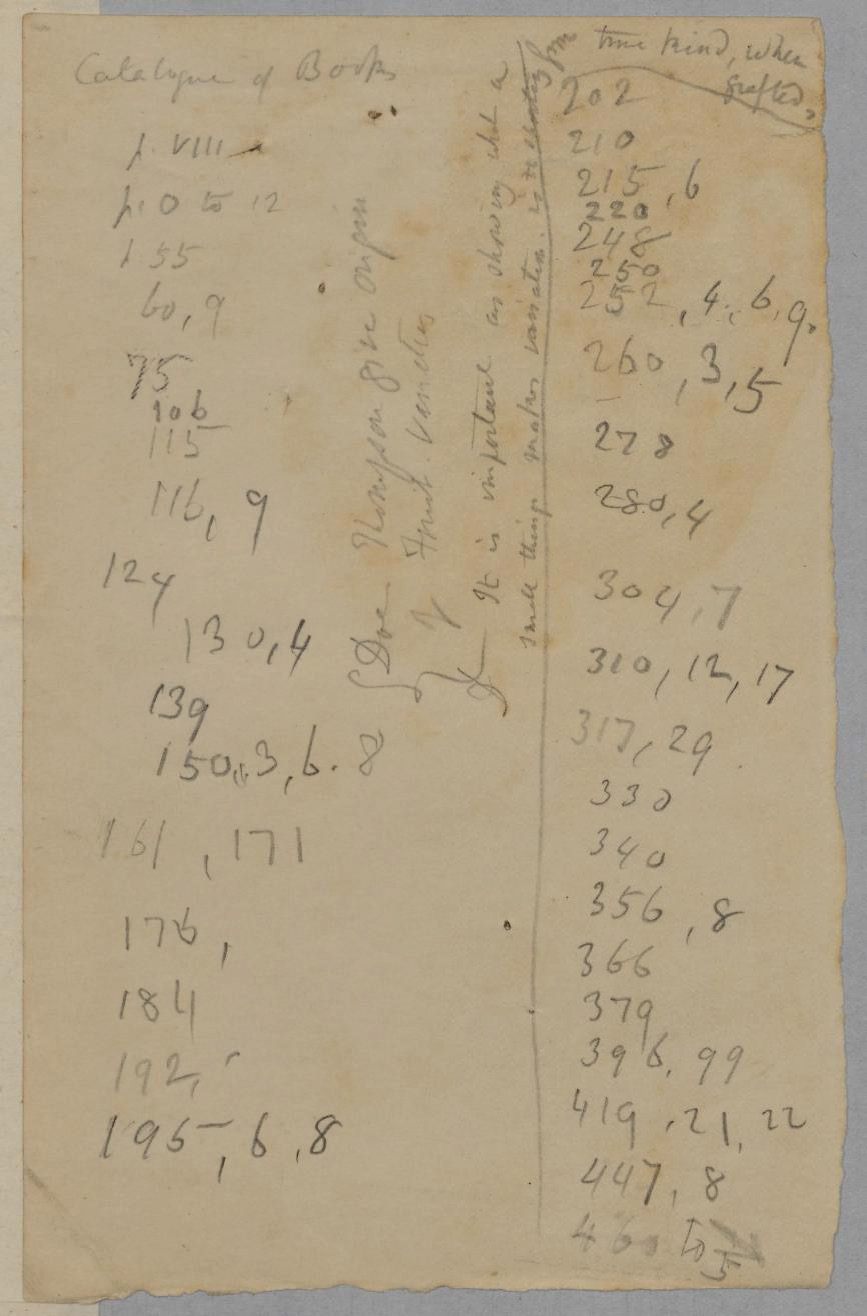 Catalogue of Books
p. VIII
p. 0 to 12
155
60, 9
75
106
115
116, 9
124
130, 4
139
150, 3, 6. 8
161, 171
176,
184
192,
195, 6, 8
Does Thompson give origin
of Fruit. Varieties
It is important as showing what a
small things makes variation.
true kind, when
grafted.
202
210
215, 6
220
248
250
252, 4, 6, 9.
260, 3, 5
278
280, 4
304, 7
310, 12, 17
317, 29
330
340
356, 8
366
379
396, 99
419, 21, 22
447, 8
460 to 5